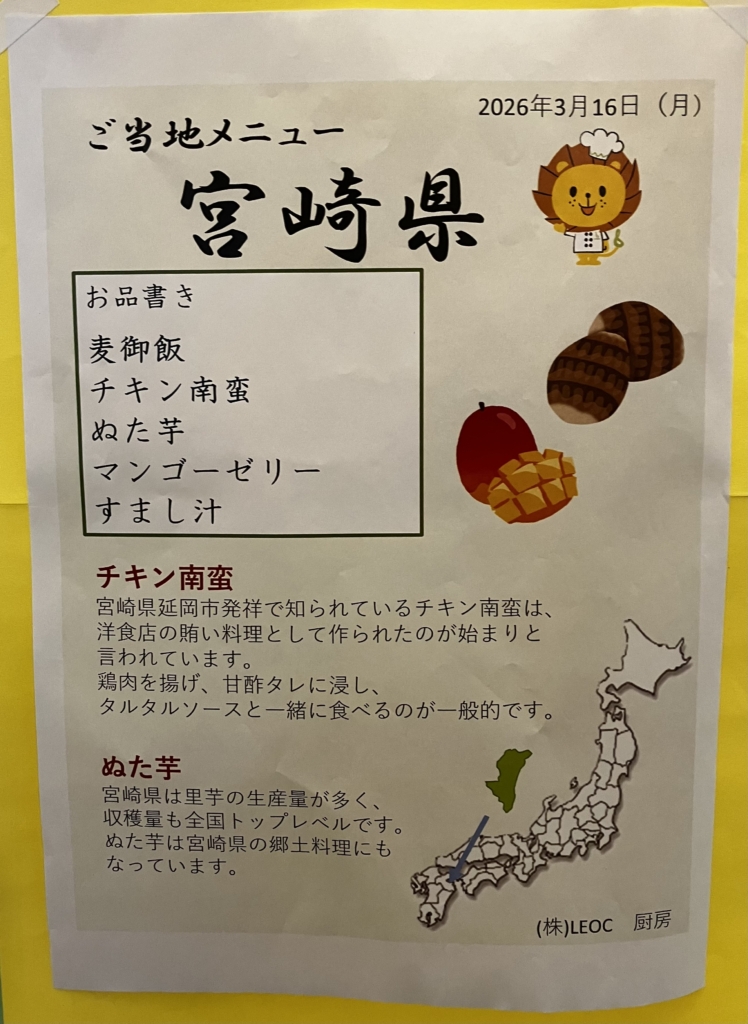 2026年3月16日（月）
ご当地メニュー
宮崎県
お品書き
麦御飯
チキン南蛮
ぬた芋
マンゴーゼリー
すまし汁
チキン南蛮
宮崎県延岡市発祥で知られているチキン南蛮は、
洋食店の賄い料理として作られたのが始まりと
言われています。
鶏肉を揚げ、甘酢タレに浸し、
タルタルソースと一緒に食べるのが一般的です。
ぬた芋
宮崎県は里芋の生産量が多く、
収穫量も全国トップレベルです。
ぬた芋は宮崎県の郷土料理にも
なっています。
(株)LEOC　厨房